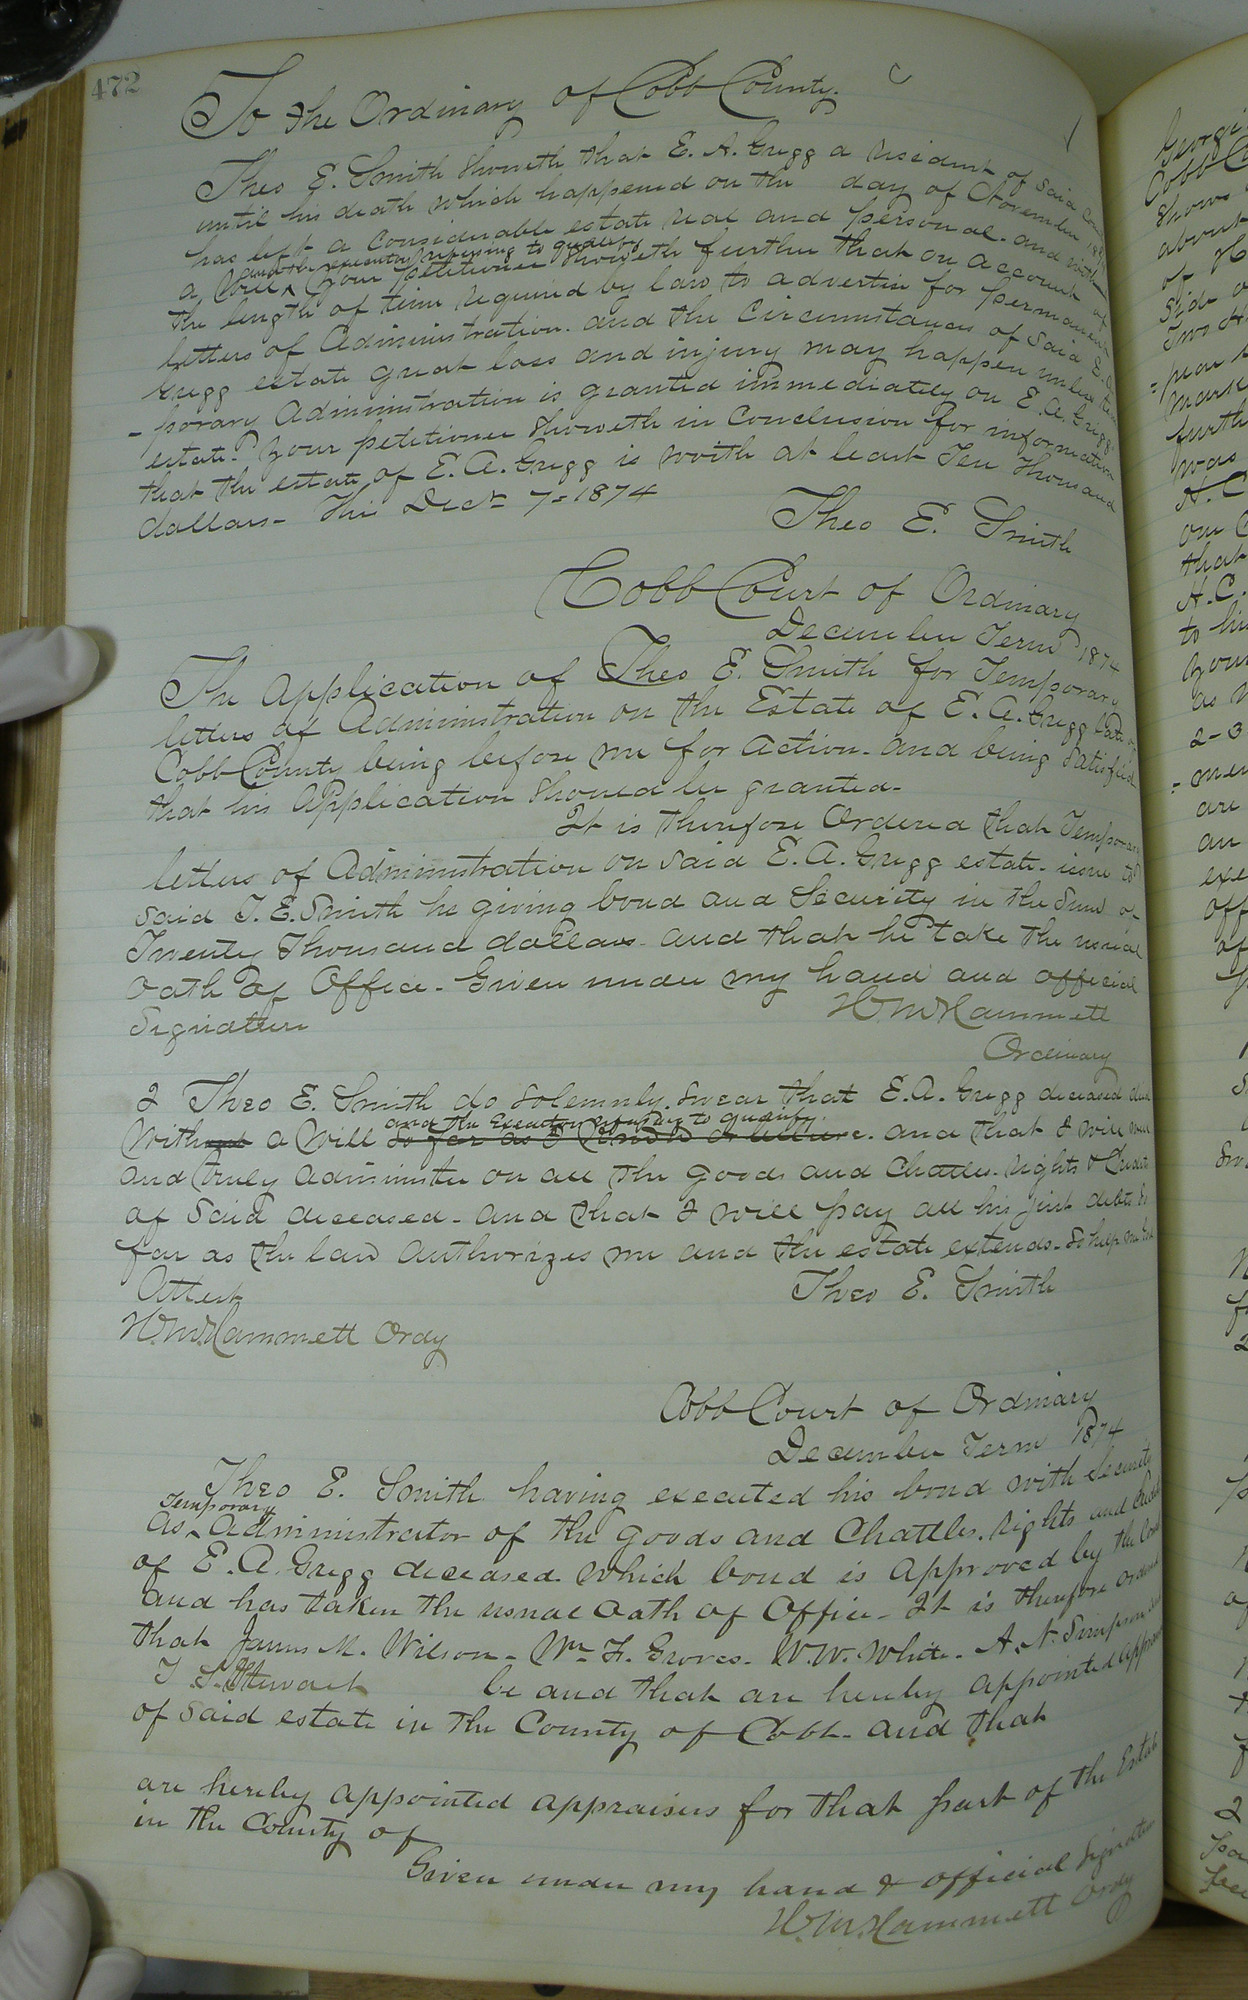 472
To the Ordinary of Cobb County.
Theo E. Smith Showeth that E. A. Gregg a resident of Said County
until his death which happened on the day of November 1874
has left a considerable estate real and personal. and with
and the executor refusing to qualify
a Will Your petitioner Showeth further that on account of
the length of time required by law to advertise for permanent
letters of Administration. and the Circumstances of Said E. A.
Gregg estate great loss and injury may happen unless tem
-porary Administration is granted immediately on E. A. Gregg
estate. Your petitioner Showeth in Conclusion for information
that the estate of E. A. Gregg is worth at least Ten Thousand
dollars- This Decr 7= 1874
Theo E. Smith
Cobb Court of Ordinary
December Term 1874
The Application of Theo E. Smith for Temporary
letters of Administration on the Estate of E. A. Gregg late of
Cobb County being before me for Action- and being Satisfied
that his Application Should be granted-
It is therefore Ordered that Temporary
letters of Administration on Said E. A. Gregg estate- issue to
Said T. E. Smith he giving bond and Security in the Sum of
Twenty Thousand dollars- and that he take the usual
Oath of Office- Given under my hand and official
Signature
H. M. Hammett
Ordinary
I Theo E. Smith do Solemnly Swear that E. A. Gregg deceased died
and the Executor refusing to qualify
Without a Will so far as I know or believe. and that I will well
and truly Administer on all the goods and Chattles- rights & Credits
of Said deceased- and that I will pay all his just debts So
far as the law Authorizes me and the estate extends- So help me God
Attest
Theo E. Smith
H. M. Hammett Ordy
Cobb Court of Ordinary
December Term 1874
Theo E. Smith having executed his bond with Security
Temporary
as Administrator of the goods and Chattles. rights and Credits
of E. A. Gregg deceased which bond is Approved by the Court
and has taken the usual Oath of Office- It is therefore ordered
that James M. Wilson- Wm F. Groves- W. W. White- A. N. Simpson and
T S. Stewart be and that are hereby appointed Appraisers
of Said estate in the County of Cobb- and that
are hereby appointed appraisers for that part of the Estate
in the County of
Given under my hand & official Signature
H. M. Hammett Ordy